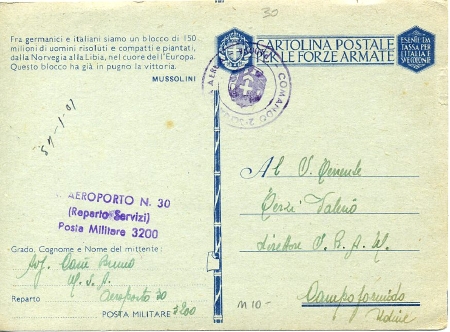 30
Fra germanici e italiani siamo un blocco di 150
milioni di uomini risoluti e compatti e piantati,
dalla Norvegia alla Libia, nel cuore dell'Europa.
Questo blocco ha già in pugno la vittoria.
MUSSOLINI
CARTOLINA POSTALE
PER LE FORZE ARMATE
ESENTE DA
TASSA PER L'ITALIA
COMANDO
AEROPORTO N. 30
(Reparto Servizi)
Posta Militare 3200
Grado, Cognome e Nome del mittente:
Bruno
Reparto Aeroporto 30
POSTA MILITARE 3200
Al
Valerio
Direttore
Campoformido
Udine
M 10-